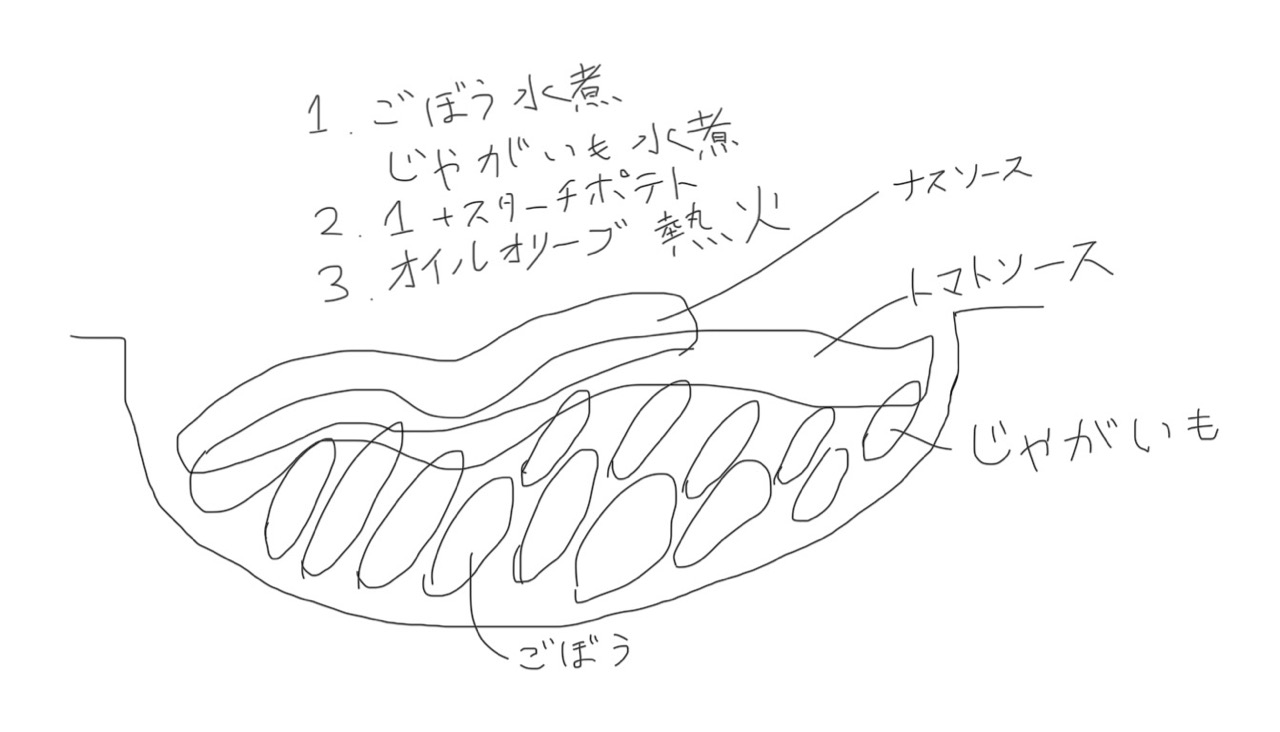 1. ごぼう水煮
じゃがいも水煮
2. 1+スターチポテト
3. オイルオリーブ 熱火
ナスソース
トマトソース
じゃがいも
ごぼう